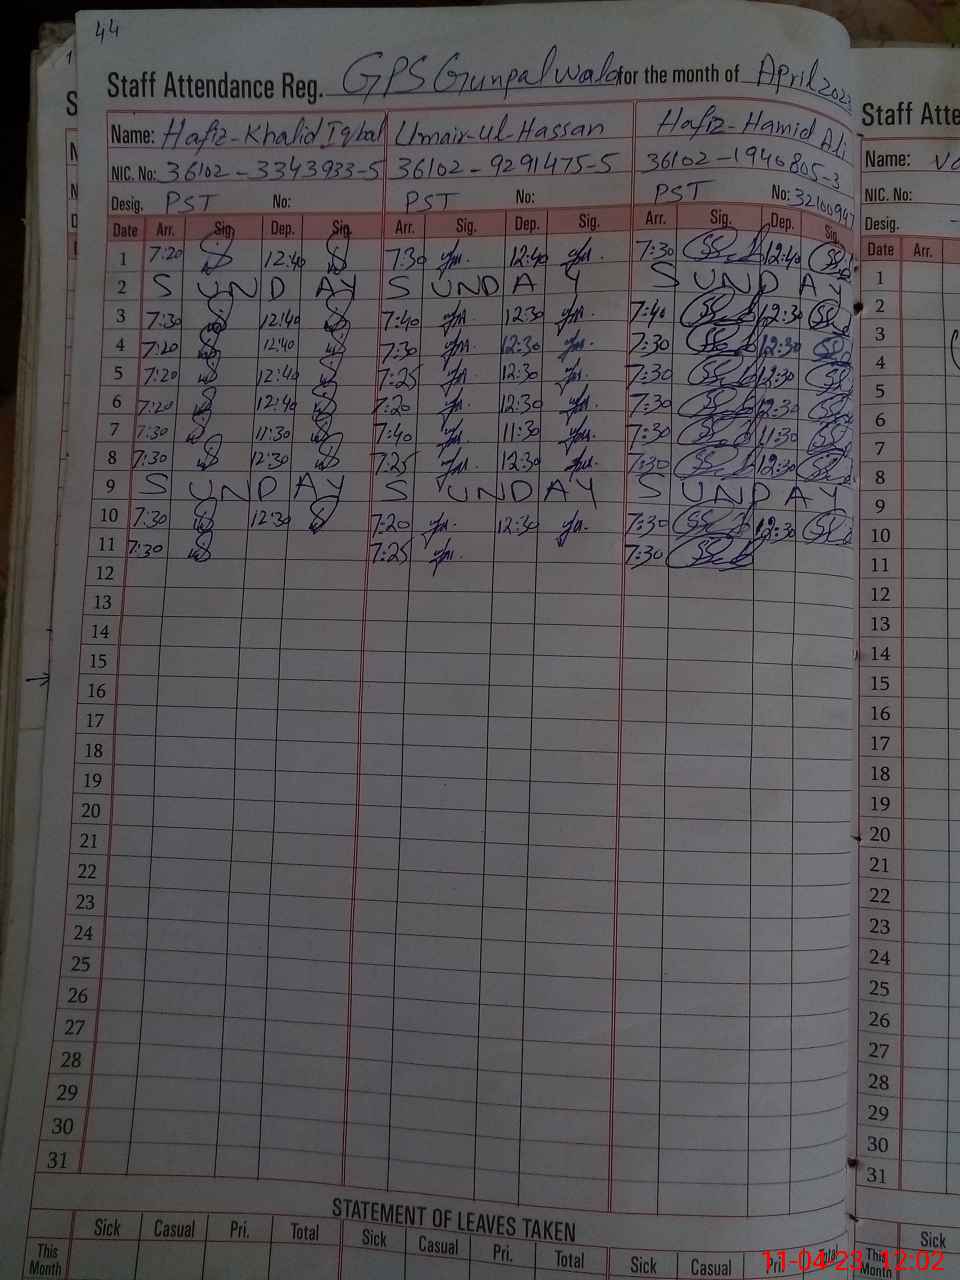 44
Staff Attendance Reg. GPS Gunpalwala for the month of April 2023
Name: Hafiz-Khalid Iqbal Umair-ul-Hassan Hafiz-Hamid Ali
NIC. No: 36102-3343933-5 36102-9291475-5 36102-1940805-3
Desig. PST No: PST No: PST No: 32100947
Date Arr. Sig. Dep. Sig. Arr. Sig. Dep. Sig. Arr. Sig. Dep. Sig.
1 7:20 12:40 7:30 12:40 7:30 12:40
2 SUNDAY SUNDAY SUNDAY
3 7:30 12:40 7:40 12:30 7:40 12:30
4 7:20 12:40 7:30 12:30 7:30 12:30
5 7:20 12:40 7:25 12:30 7:30 12:30
6 7:20 12:40 7:20 12:30 7:30 12:30
7 7:30 11:30 7:40 11:30 7:30 11:30
8 7:30 12:30 7:25 12:30 7:30 12:30
9 SUNDAY SUNDAY SUNDAY
10 7:30 12:30 7:20 12:30 7:30 12:30
11 7:30 7:25 7:30
12
13
14
15
16
17
18
19
20
21
22
23
24
25
26
27
28
29
30
31
STATEMENT OF LEAVES TAKEN
Sick Casual Pri. Total Sick Casual Pri. Total Sick Casual Pri
This Month
Staff Atte
Name:
NIC. No:
Desig.
Date Arr.
1
2
3
4
5
6
7
8
9
10
11
12
13
14
15
16
17
18
19
20
21
22
23
24
25
26
27
28
29
30
31
Sick
This Month
11-04-23 12:02